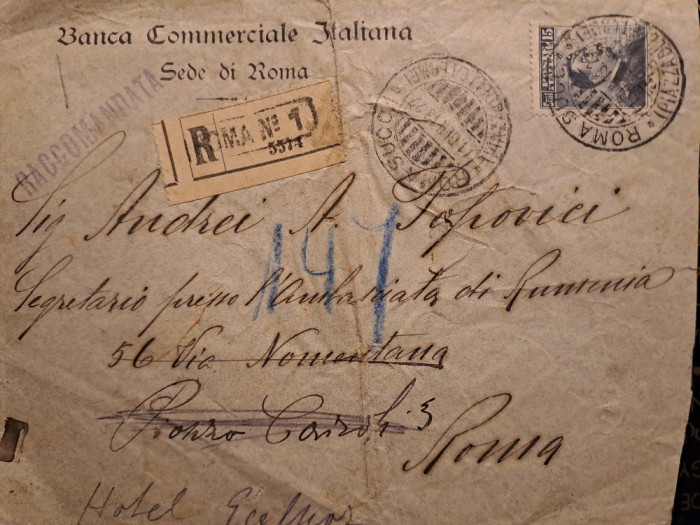 Banca Commerciale Italiana
Sede di Roma
RACCOMANDATA
R
ROMA Nº 1
5574
15
ROMA SUCC
Sig Andrei A. Popovici
147
Segretario presso l'Ambasciata di Rumenia
56 Via Nomentana
3
Roma
Hotel